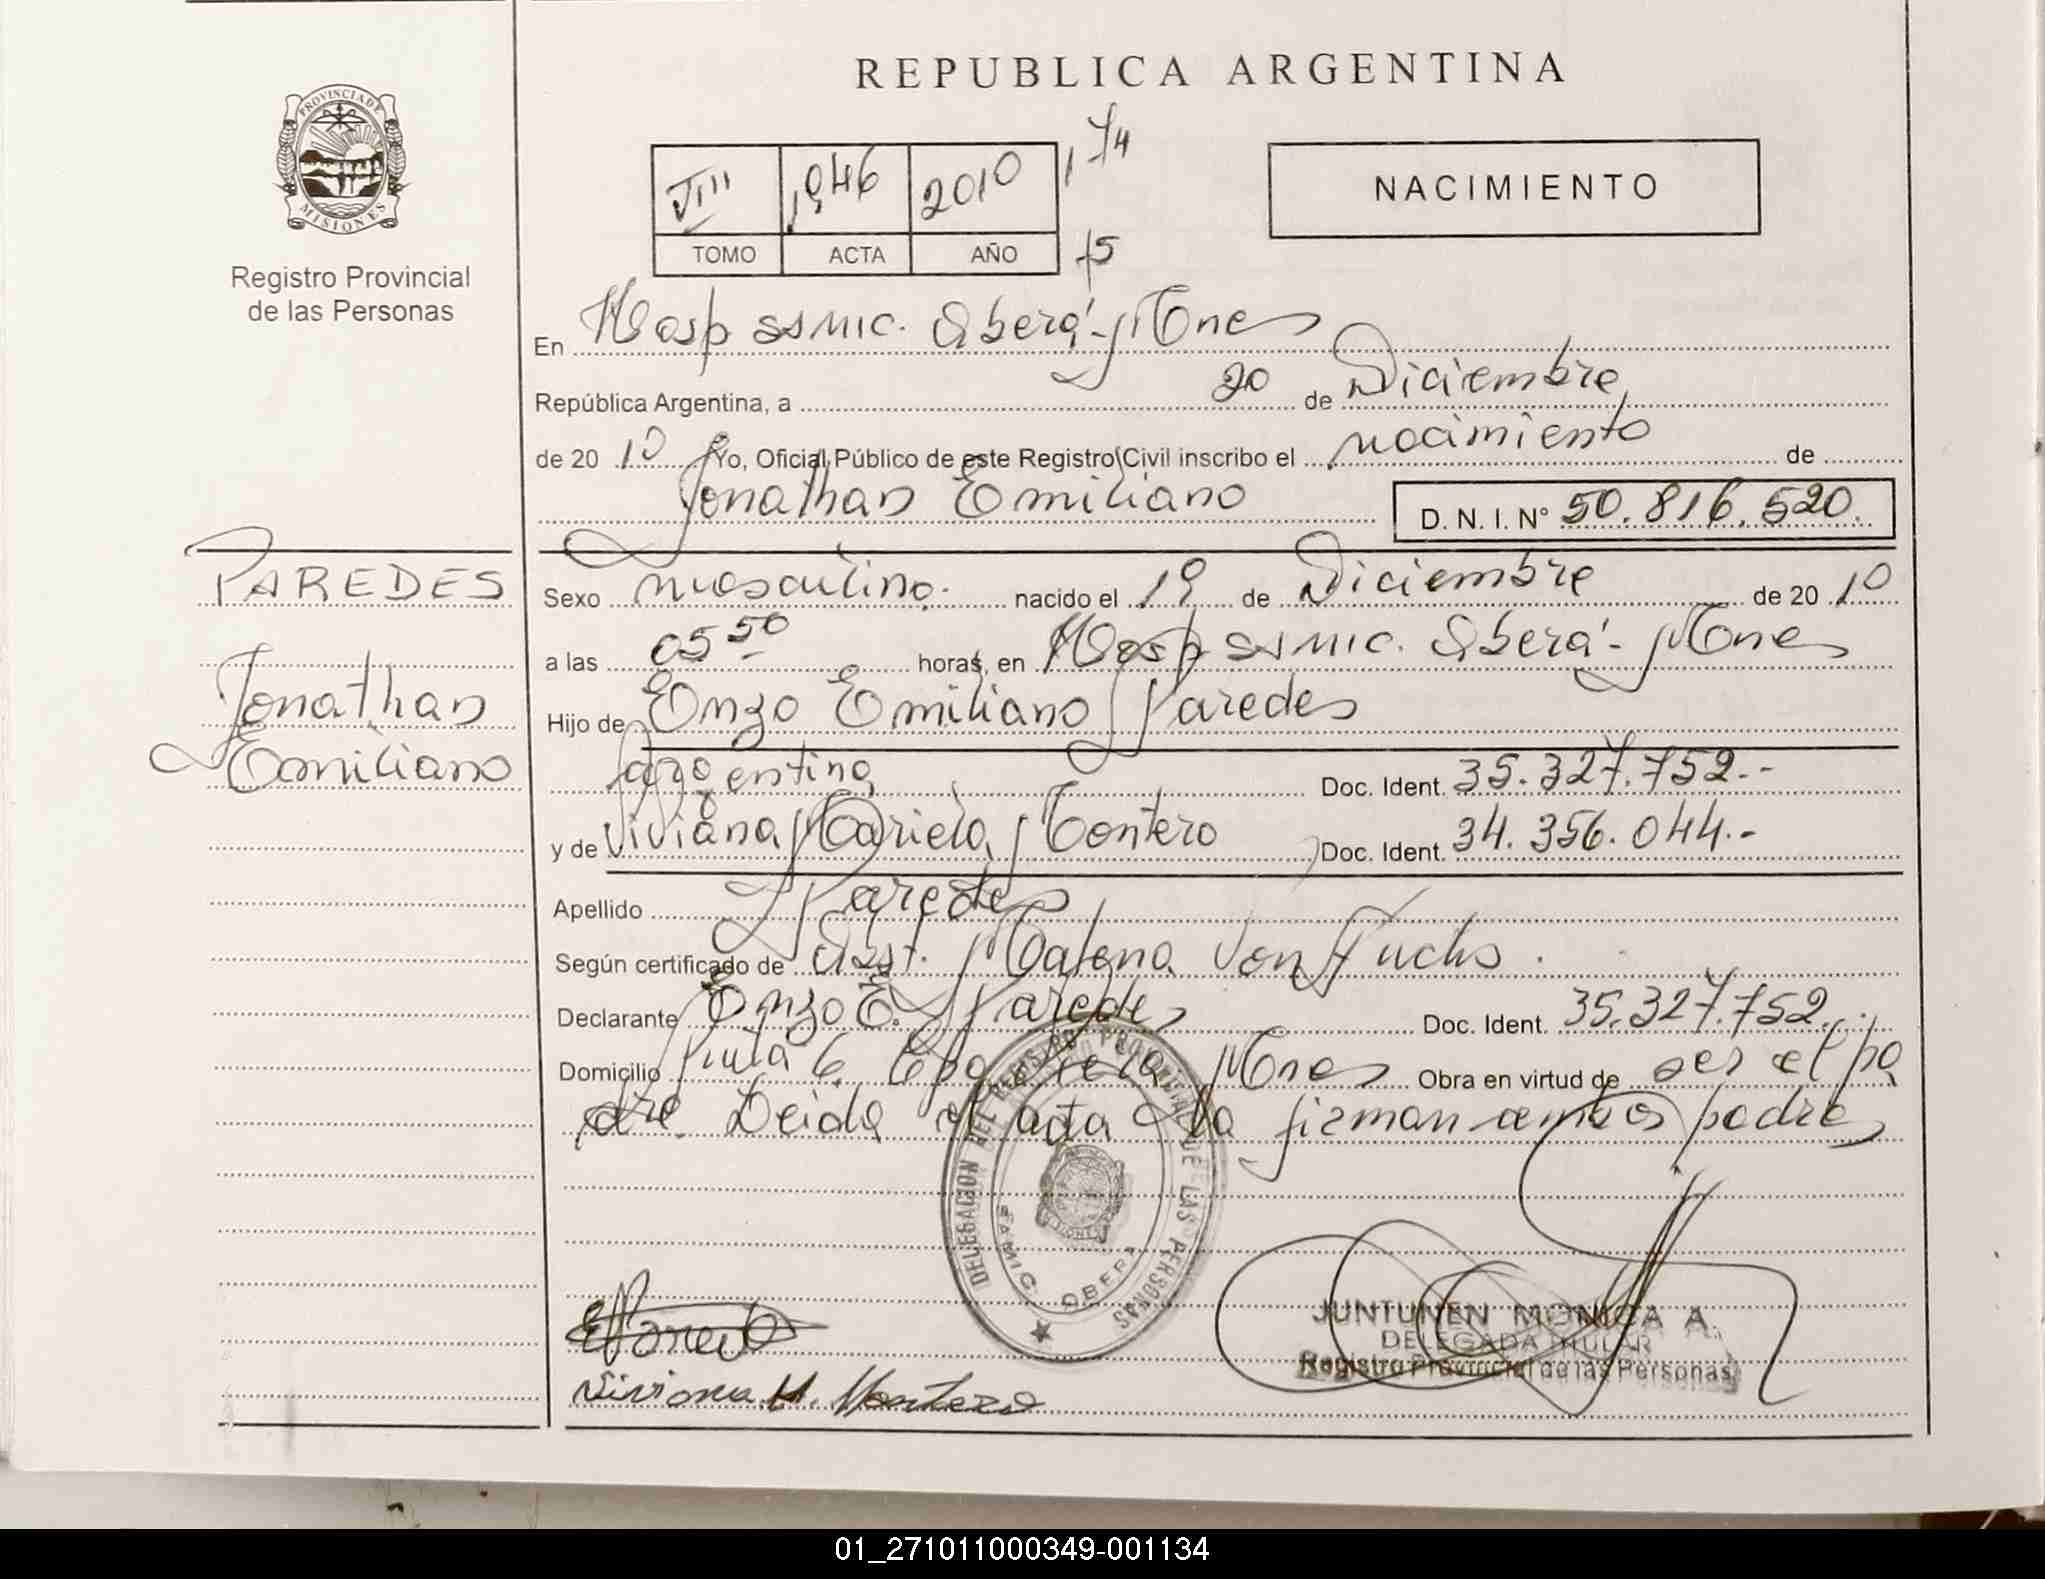 REPUBLICA ARGENTINA
PROVINCIA DE
MISIONES
Registro Provincial
de las Personas
VIII 1946 2010
TOMO ACTA AÑO
74
75
NACIMIENTO
En Hosp SAMIC. Oberá - Mnes
República Argentina, a 20 de Diciembre
de 2010 Yo, Oficial Público de este Registro Civil inscribo el nacimiento de
Jonathan Emiliano D. N. I. N° 50.816.520.
PAREDES
Jonathan
Emiliano
Sexo masculino. nacido el 19 de Diciembre de 2010
a las 05 50 horas, en Hosp SAMIC. Oberá - Mnes
Hijo de Enzo Emiliano Paredes
argentino Doc. Ident. 35.327.752.-
y de Viviana Mariela Montero Doc. Ident. 34.356.044.-
Apellido Paredes
Según certificado de Obst. Malena Von Fuchs.
Declarante Enzo E. Paredes Doc. Ident. 35.327.752.
Domicilio ruta 6 Mnes Obra en virtud de ser el pa
dre. Leida el acta la firman ambos padres
DELEGACION DEL REGISTRO PROVINCIAL DE LAS PERSONAS
SAMIC OBERA
E Paredes
Viviana M. Montero
JUNTUNEN MONICA A.
DELEGADA TITULAR
Registro Provincial de las Personas
01_271011000349-001134